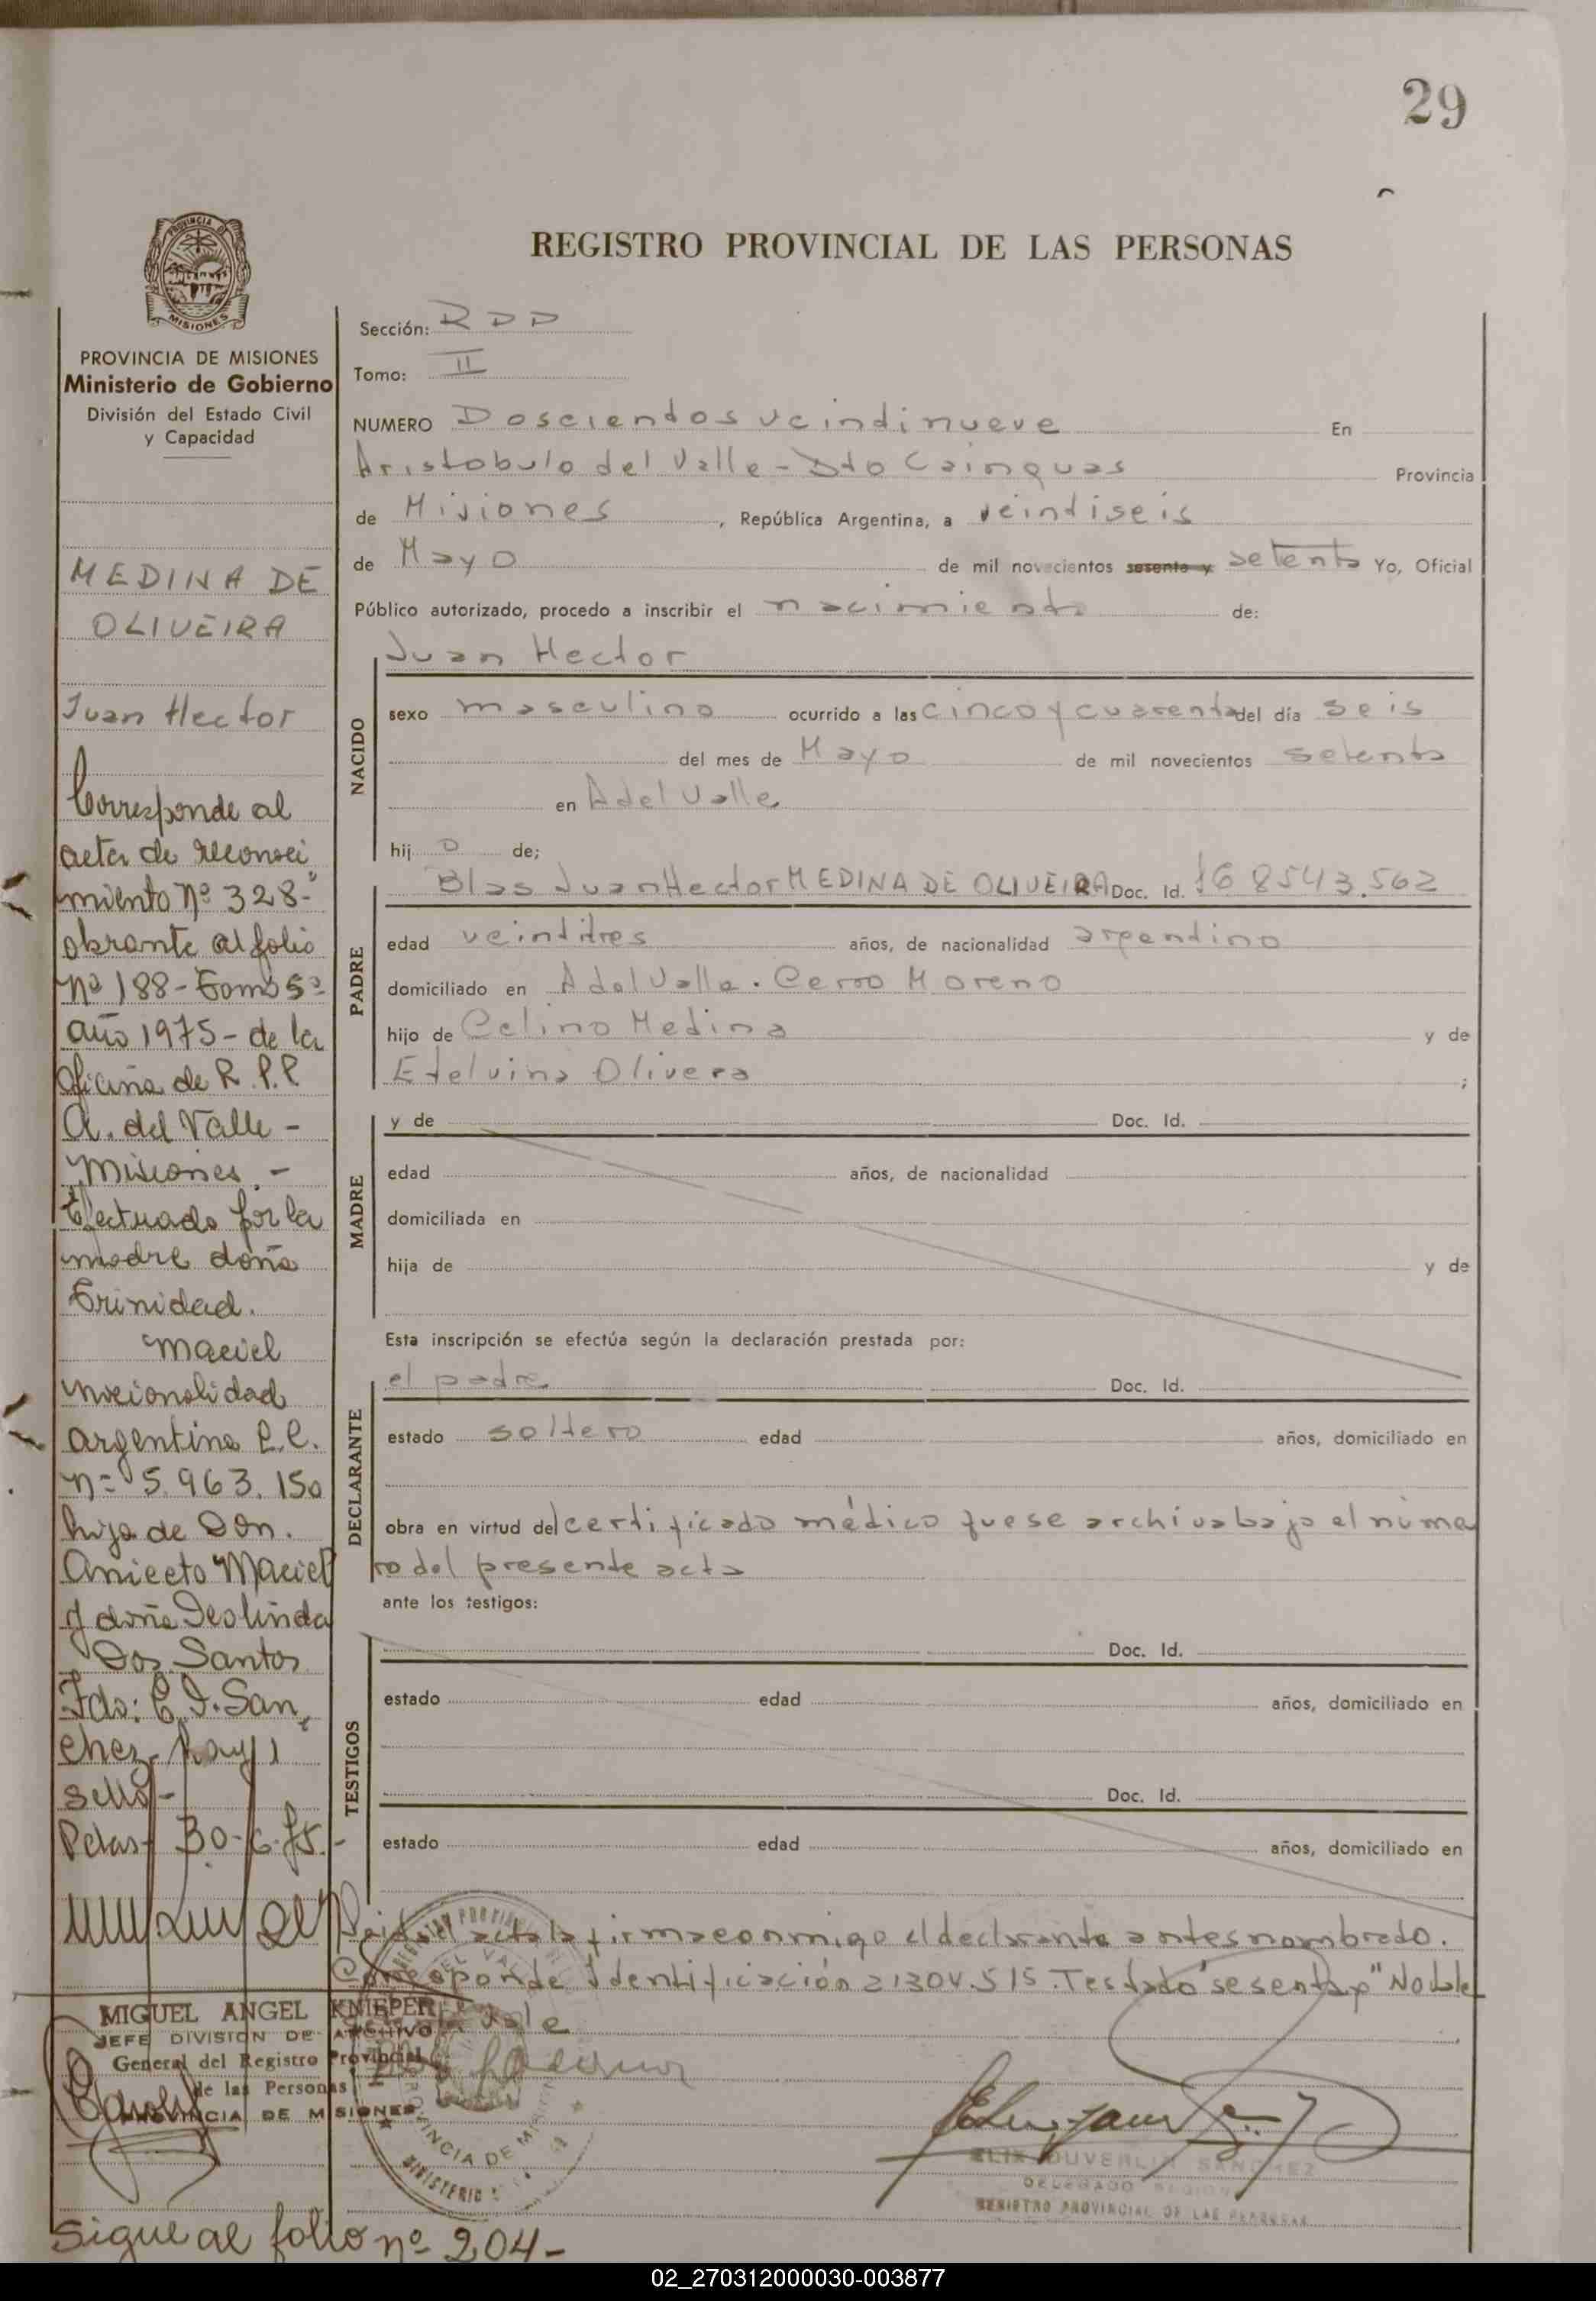 29
REGISTRO PROVINCIAL DE LAS PERSONAS
PROVINCIA DE MISIONES
PROVINCIA DE MISIONES
Ministerio de Gobierno
División del Estado Civil
y Capacidad
MEDINA DE
OLIVEIRA
Juan Hector
Corresponde al
acta de reconoci
miento nº 328-
obrante al folio
nº 188- Tomo 5º
año 1975- de la
Oficina de R.P.P
A. del Valle -
Misiones.-
Efectuado por la
madre doña
Trinidad.
Maciel
nacionalidad
argentina L.C.
nº 5.963.150
hija de Don.
Aniceto Maciel
y doña Teolinda
Dos Santos
Fdo: E.D. San
chez- hay 1
sello-
Pdas- 30-6-75.-
MIGUEL ANGEL KNIEPER
JEFE DIVISION DE ARCHIVO
General del Registro Provincial
de las Personas
PROVINCIA DE MISIONES
Sigue al folio nº 204-
Sección: RDD
Tomo: II
NUMERO Doscientos veindinueve En
Aristobulo del Valle - Dto Cainguas Provincia
de Misiones, República Argentina, a veintiseis
de Mayo de mil novecientos sesenta y setenta Yo, Oficial
Público autorizado, procedo a inscribir el nacimiento de:
Juan Hector
NACIDO
sexo masculino ocurrido a las cinco y cuarenta del día seis
del mes de Mayo de mil novecientos setenta
en A del Valle
hijo de;
PADRE
Blas Juan Hector MEDINA DE OLIVEIRA Doc. Id. 168543.562
edad veintitres años, de nacionalidad argentino
domiciliado en A del Valle. Cerro Moreno
hijo de Celino Medina y de
Etelvina Olivera;
MADRE
y de Doc. Id.
edad años, de nacionalidad
domiciliada en
hija de y de
Esta inscripción se efectúa según la declaración prestada por:
DECLARANTE
el padre Doc. Id.
estado soltero edad años, domiciliado en
obra en virtud del certificado médico que se archiva bajo el núme
ro del presente acta
ante los testigos:
TESTIGOS
Doc. Id.
estado edad años, domiciliado en
Doc. Id.
estado edad años, domiciliado en
Leida el acta la firma conmigo el declarante antes nombrado.
Corresponde identificación 2130 V.515. Testado "sesenta y" No vale
vale
SANCHEZ
DELEGADO
REGISTRO PROVINCIAL DE LAS PERSONAS
02_270312000030-003877